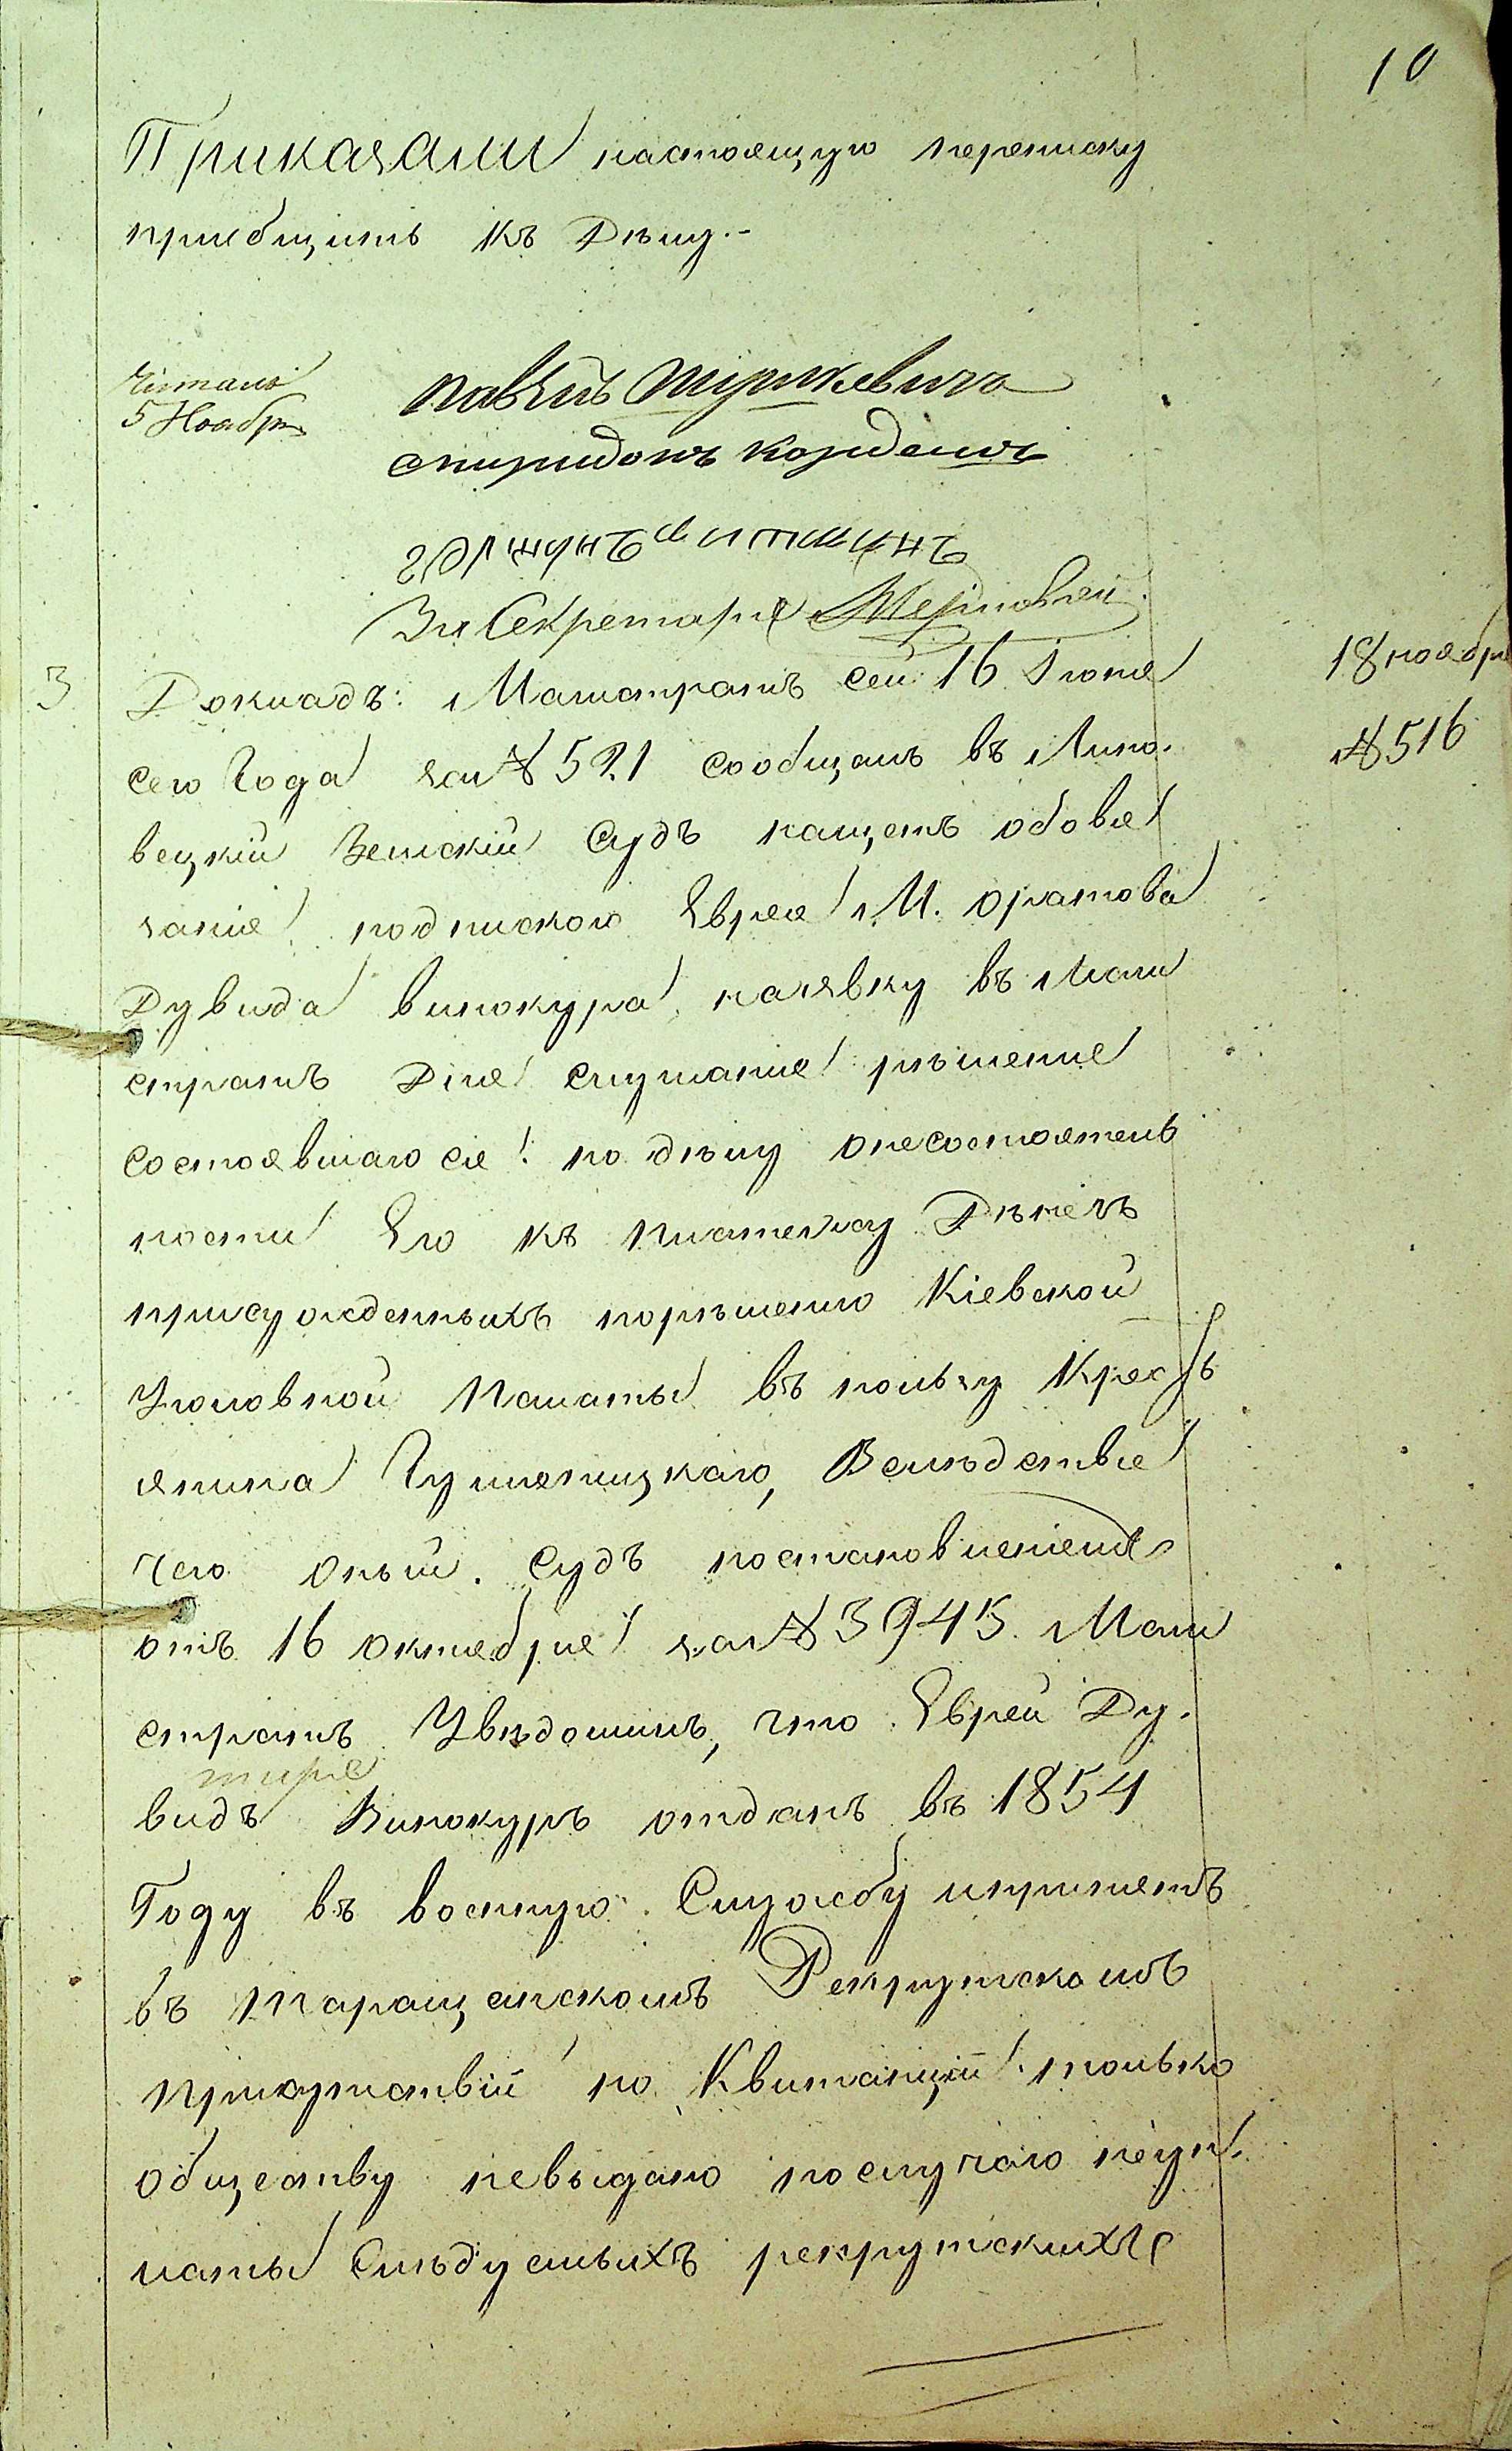 10
Приказали настоящую переписку
приобщить къ Дѣлу.-
Читалъ
5 Ноября
Спиридонъ
За Секретаря
3
Докладъ: Магистратъ сей 16 Іюня
18 ноября
сего Года за № 521 сообщалъ въ Липо-
№ 516
вецкій Земскій Судъ нащетъ обовя
заніе подпискою Еврея М. Оратова
Дувида Винокура наявку въ Маги
стратъ Для слушаніе рѣшеніе
состоявшагося по дѣлу онесостоятель
ности Его къ платежу Дѣнегъ
присужденныхъ порѣшенію Кіевской
Уголовной Палаты въ пользу Кресть
янина Гуменицкаго, Вслѣдствіе
чего оный Судъ постановленіемъ
отъ 16 октебря за № 3945 Маги
стратъ Увѣдомилъ, что Еврей Ду-
видъ Винокуръ отданъ въ 1854
Году въ военную Службу ипринятъ
въ Таращанскомъ Рекрутскомъ
присутствіи по Квитанціи только
обществу невыдано послучаю неуп-
латы Слѣдуемыхъ рекрутскихъ